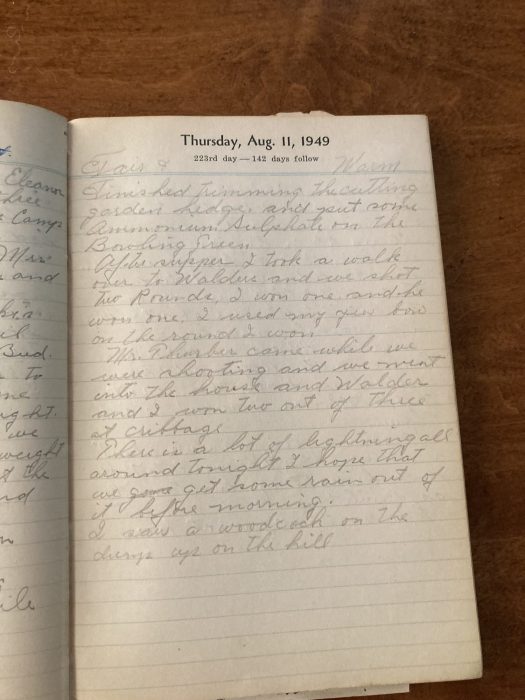 t.
Eleanor
three
Camp
Mrs
and
il
Bud.
to
ne
ght.
we
weight
t the
nd
n
ile
Thursday, Aug. 11, 1949
223rd day — 142 days follow
Fair & Warm
Finished trimming the cutting
garden hedge, and put some
Ammonium Sulphate on the
Bowling Green
After supper I took a walk
over to Walders and we shot
two Rounds, I won one and he
won one, I used my yew bow
on the round I won
Mr. came while we
were shooting and we went
into the house and Walder
and I won two out of three
at cribbage
There is a lot of lightning all
around tonight I hope that
we get some rain out of
it before morning.
I saw a woodcock on the
dump up on the hill